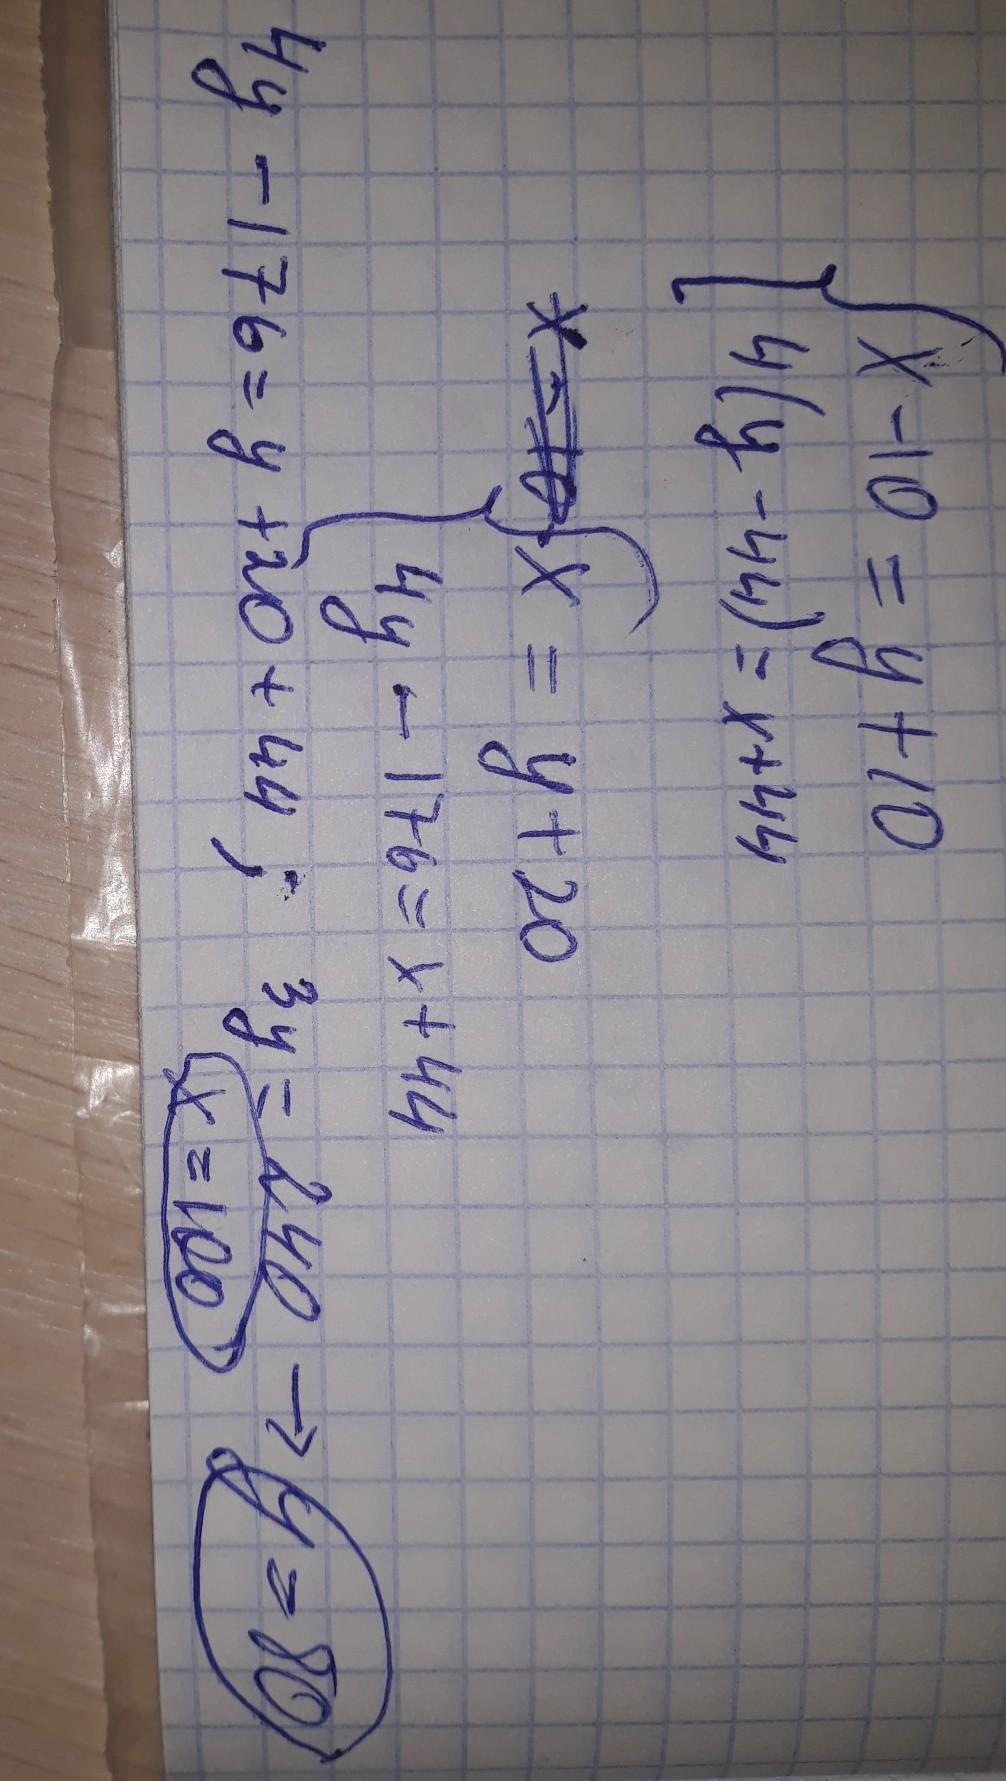 x - 10 = y + 10
4(y - 44) = x + 44
x = y + 20
4y - 176 = x + 44
4y - 176 = y + 20 + 44 ; 3y = 240 → y = 80
x = 100